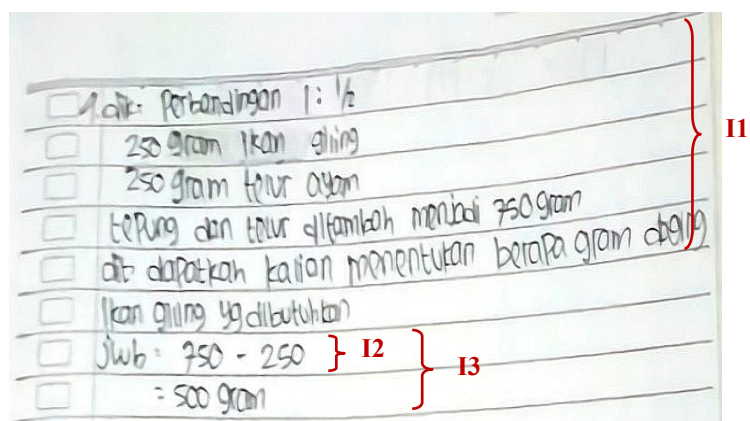 1. dik: Perbandingan 1 : 1/2
250 gram Ikan giling
250 gram telur ayam
tepung dan telur ditambah menjadi 750 gram
dit: dapatkah kalian menentukan berapa gram daging
Ikan giling yg dibutuhkan
jwb = 750 - 250
= 500 gram
I1
I2
I3